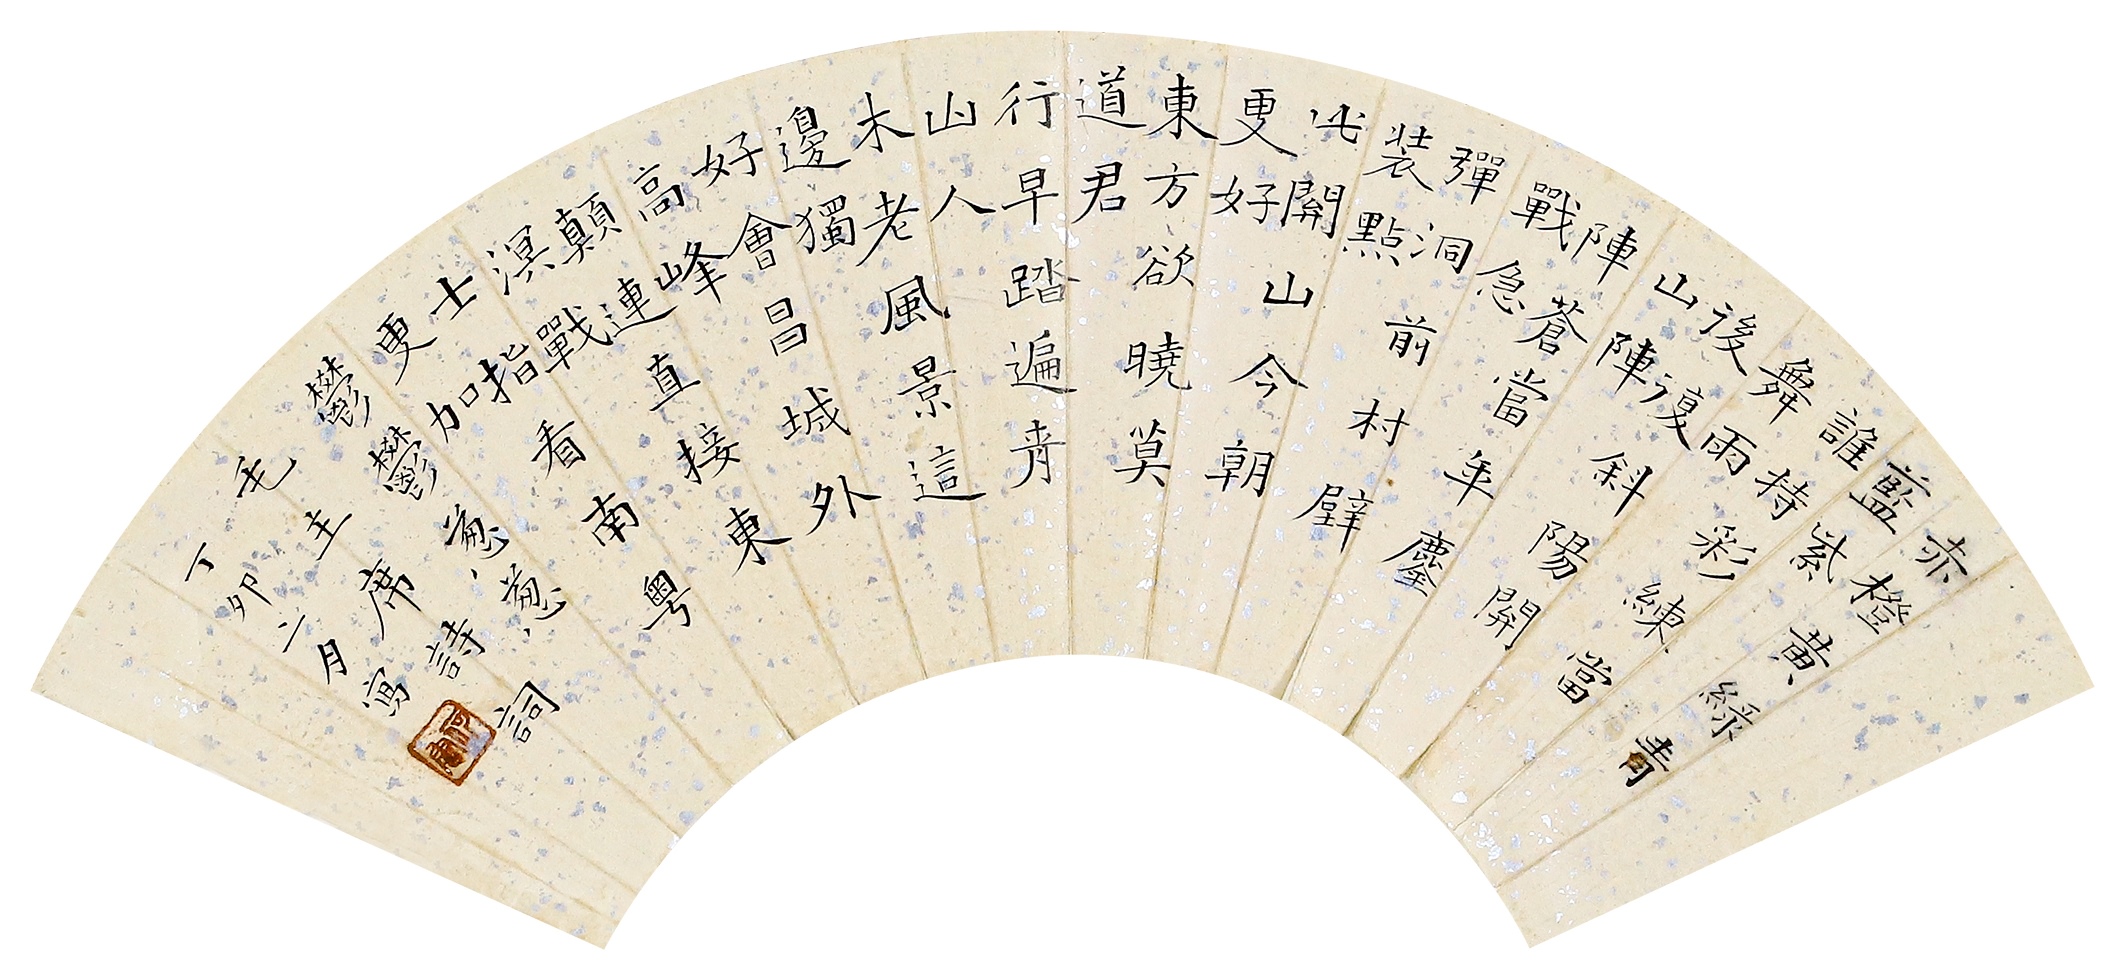 赤橙黄綠青
藍紫
誰持彩練當
舞雨
後復斜陽開
山陣
陣蒼當年鏖
戰急
彈洞前村壁
裝點
此開山今朝
更好
東方欲曉莫
道君
行早踏遍青
山人
未老風景這
邊獨
好會昌城外
高峰
顛連直接東
溟戰
士指看南粵
更加
鬱鬱葱葱
毛主席詩詞
丁卯二月寫